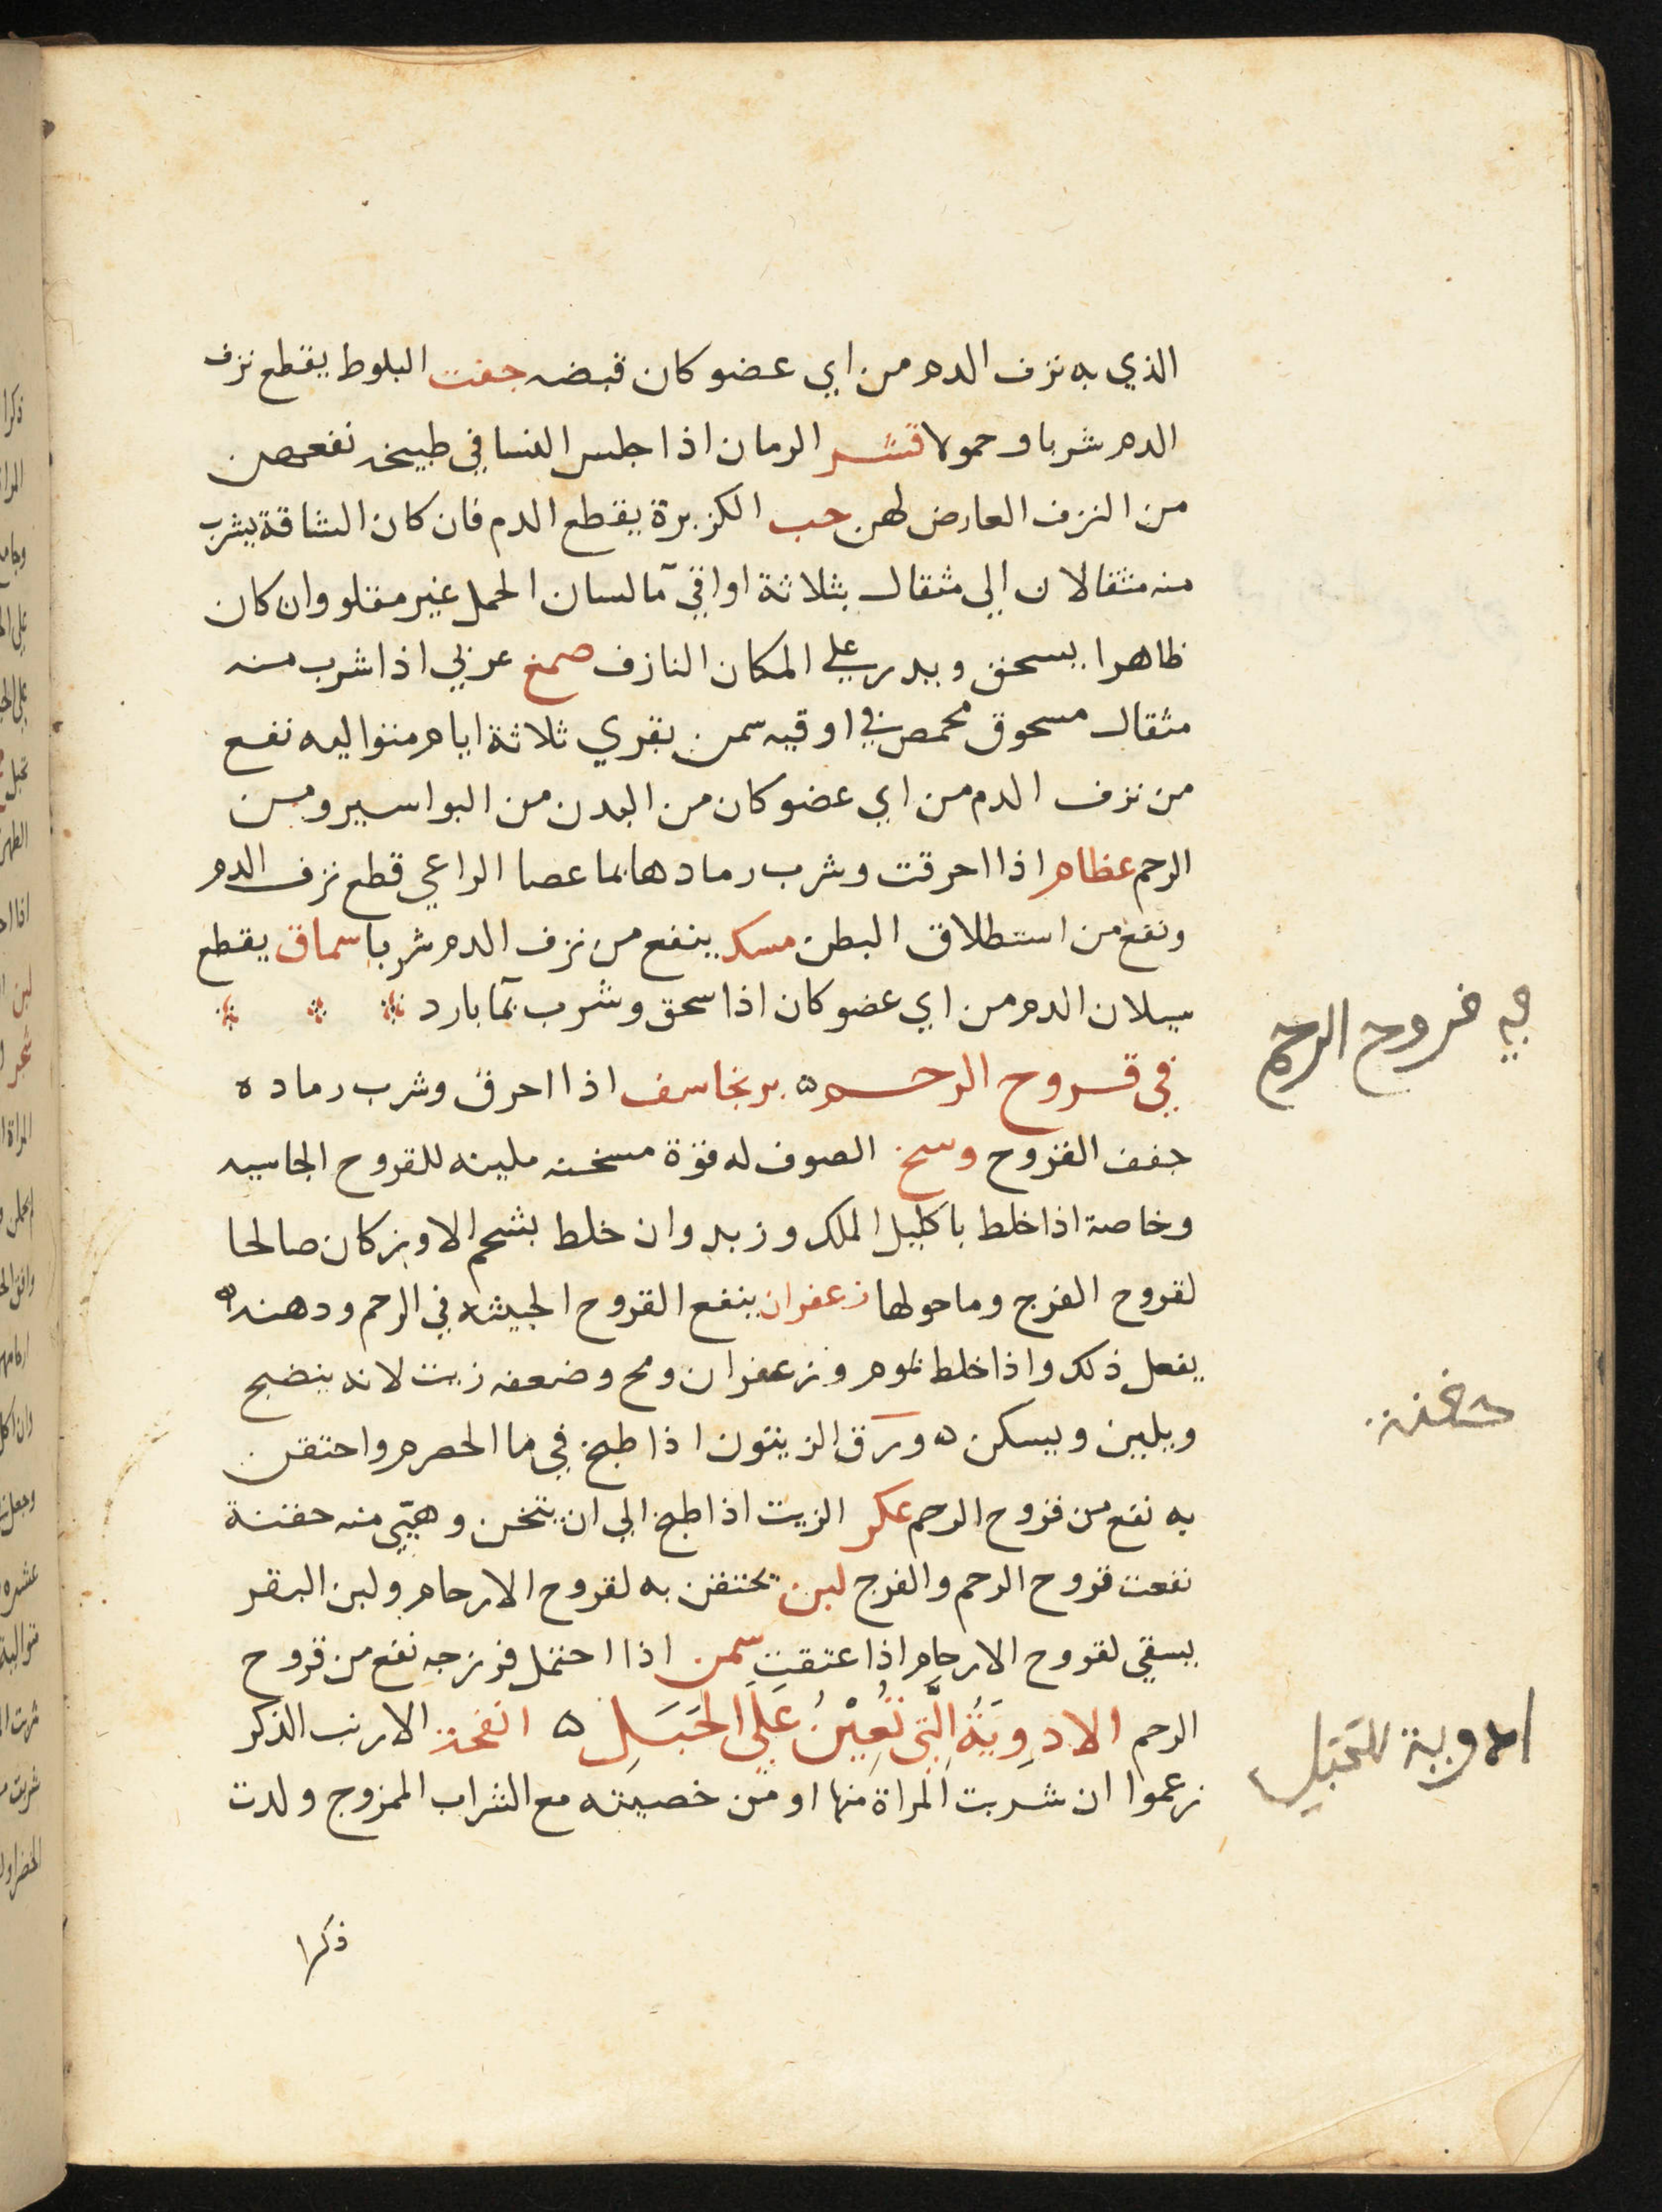 الذي به نزف الدم من اي عضو كان قبضه جفت البلوط يقطع نزف
الدم شربا وحمولا قشر الرمان اذا جلس النسا في طبيخه نفعهن
من النزف العارض لهن حب الكزبرة يقطع الدم فان كان الشاقة يشرب
منه مثقالان الي مثقال بثلاثة اواقي مآ لسان الحمل غير مقلو وان كان
ظاهرا يسحق ويدر علي المكان النازف صمغ عربي اذا شرب منه
مثقال مسحوق محمص في اوقيه سمن بقري ثلاثة ايام متواليه نفع
من نزف الدم من اي عضو كان من البدن من البواسير ومن
الرحم عظام اذا احرقت وشرب رمادها بما عصا الراعي قطع نزف الدم
ونفع من استطلاق البطن مسك ينفع من نزف الدم شربا سماق يقطع
سيلان الدم من اي عضو كان اذا سحق وشرب بمآ بارد
في قروح الرحم ه برنجاسف اذا احرق وشرب رماده
جفف القروح وسخ الصوف له قوة مسخنه ملينه للقروح الجاسيه
وخاصة اذا خلط باكليل الملك وزبد وان خلط بشحم الاوز كان صالحا
لقروح الفرج وما حولها زعفران ينفع القروح الخبيثه في الرحم ودهنه
يفعل ذلك واذا خلط بموم وزعفران ومح وضعفه زيت لانه ينضج
ويلين ويسكن ه ورق الزيتون اذا طبخ في ما الحصرم واحتقن
به نفع من قروح الرحم عكر الزيت اذا طبخ الي ان يثخن وهيي منه حقنة
نفعت قروح الرحم والفرج لبن يحتقن به لقروح الارحام ولبن البقر
يسقي لقروح الارحام اذا عتقت سمن اذا احتمل فرزجه نفع من قروح
الرحم الادوِيَةُ الَّتِي تُعِيْنُ عَلَي الحَبَلِ ه انفحة الارنب الذكر
زعموا ان شربت المراة منها او من خصيته مع الشراب الممزوج ولدت
ذكرا
في قروح الرحم
حقنه
ادوية للحبل